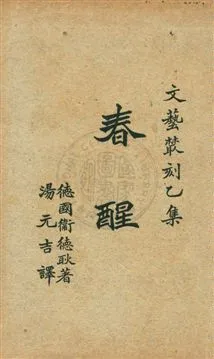 文藝叢刻乙集
春醒
德國衛德耿著
湯元吉譯